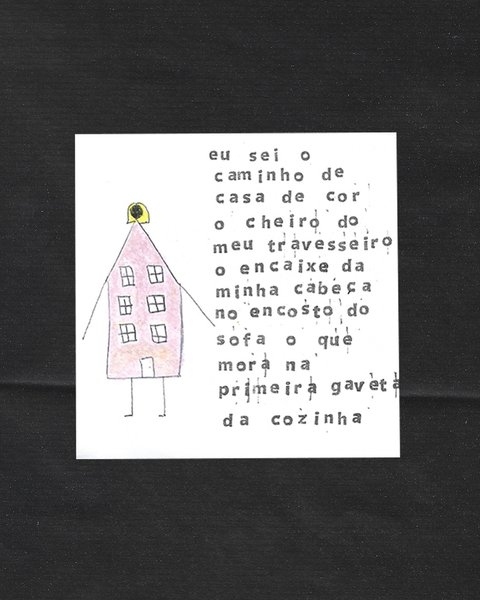 eu sei o
caminho de
casa de cor
o cheiro do
meu travesseiro
o encaixe da
minha cabeça
no encosto do
sofa o que
mora na
primeira gaveta
da cozinha